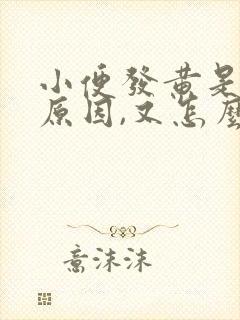 小便發黄是
原因,又怎麼
意沫沫